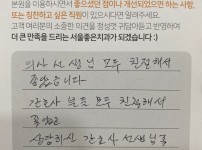 본원을 이용하시면서 좋으셨던 점이나 개선되었으면 하는 사항,
또는 칭찬하고 싶은 직원이 있으시다면 알려주세요.
고객 여러분의 소중한 의견을 정성껏 귀담아듣고 반영하여
더 큰 만족을 드리는 서울좋은치과가 되겠습니다 :)
의사 선생님 모두 친절해서
좋았습니다
간호사 분들 모두 친절해서
좋았고
상담하신 간호사 선생님도